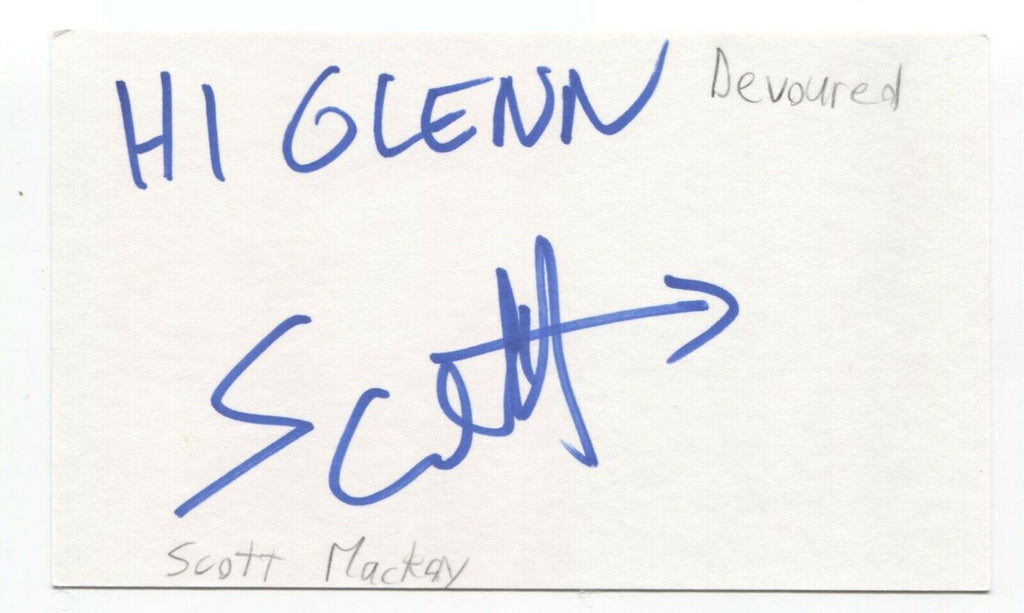 HI GLENN
Devoured
Scott
Scott Mackay